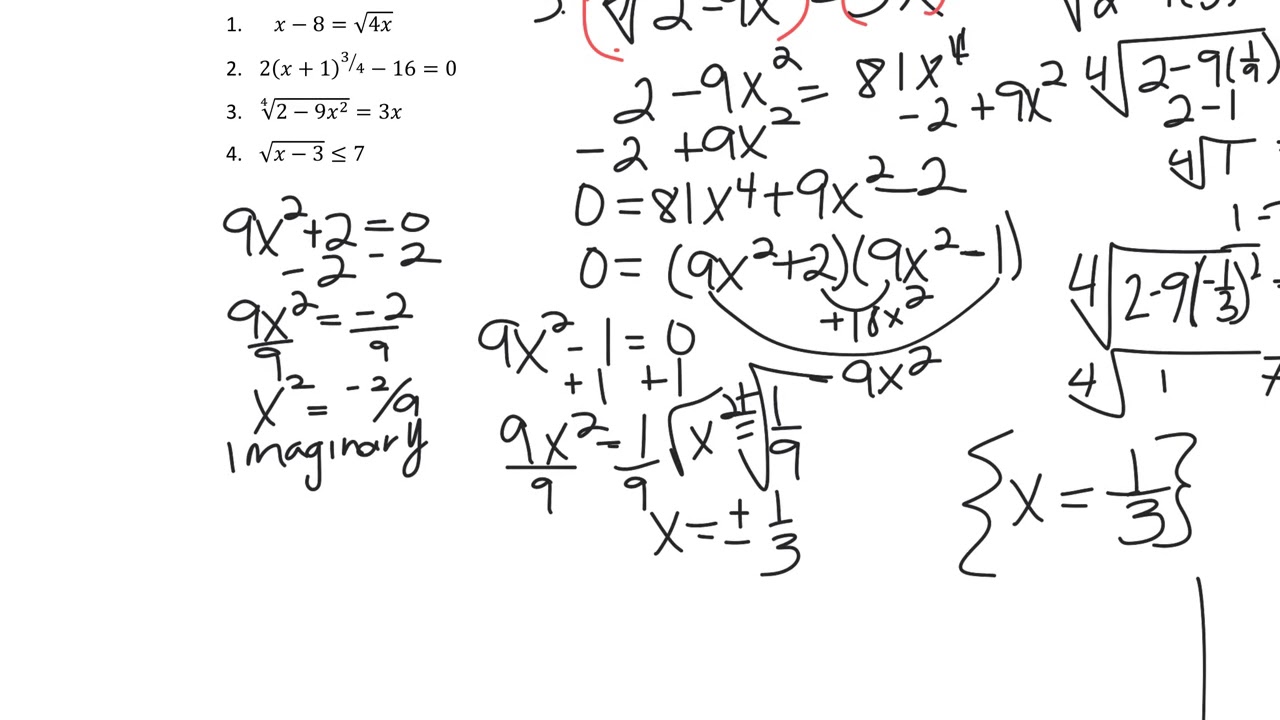 1. x − 8 = √4x
2. 2(x + 1)^3/4 − 16 = 0
3. ∜2 − 9x² = 3x
4. √x − 3 ≤ 7
9x² + 2 = 0
- 2 - 2
9x² = -2
9 9
x² = -2/9
imaginary
2 - 9x² = 81x⁴
- 2 + 9x² - 2 + 9x²
0 = 81x⁴ + 9x² - 2
0 = (9x² + 2)(9x² - 1)
+18x²
- 9x²
9x² - 1 = 0
+ 1 + 1
9x² = 1
9 9
√x² = ±√1/9
x = ± 1/3
∜2 - 9(1/9)
2 - 1
∜1
1 =
∜2 - 9(-1/3)²
∜1
{x = 1/3}